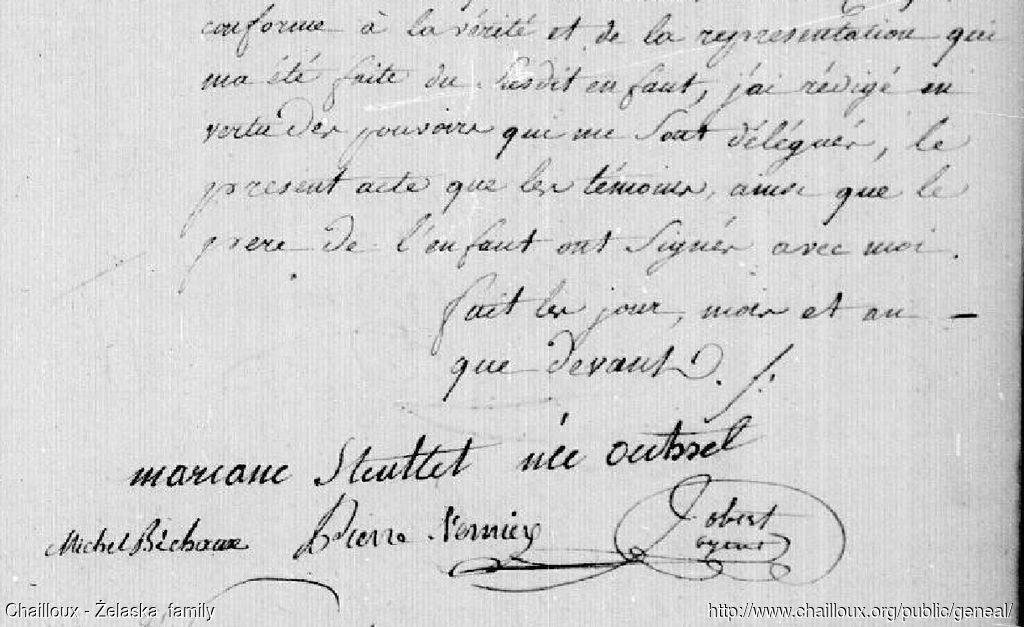 conforme à la vérité et de la representation qui
ma été faite du susdit enfant, j'ai rédigé en
vertu des pouvoirs qui me sont délégués, le
present acte que les témoins, ainsi que le
pere de l'enfant ont signés avec moi.
fait les jour, mois et an —
que devant.
mariane née
Michel Béchaux Pierre Vernier
Jobert
Chailloux - Żelaska family http://www.chailloux.org/public/geneal/